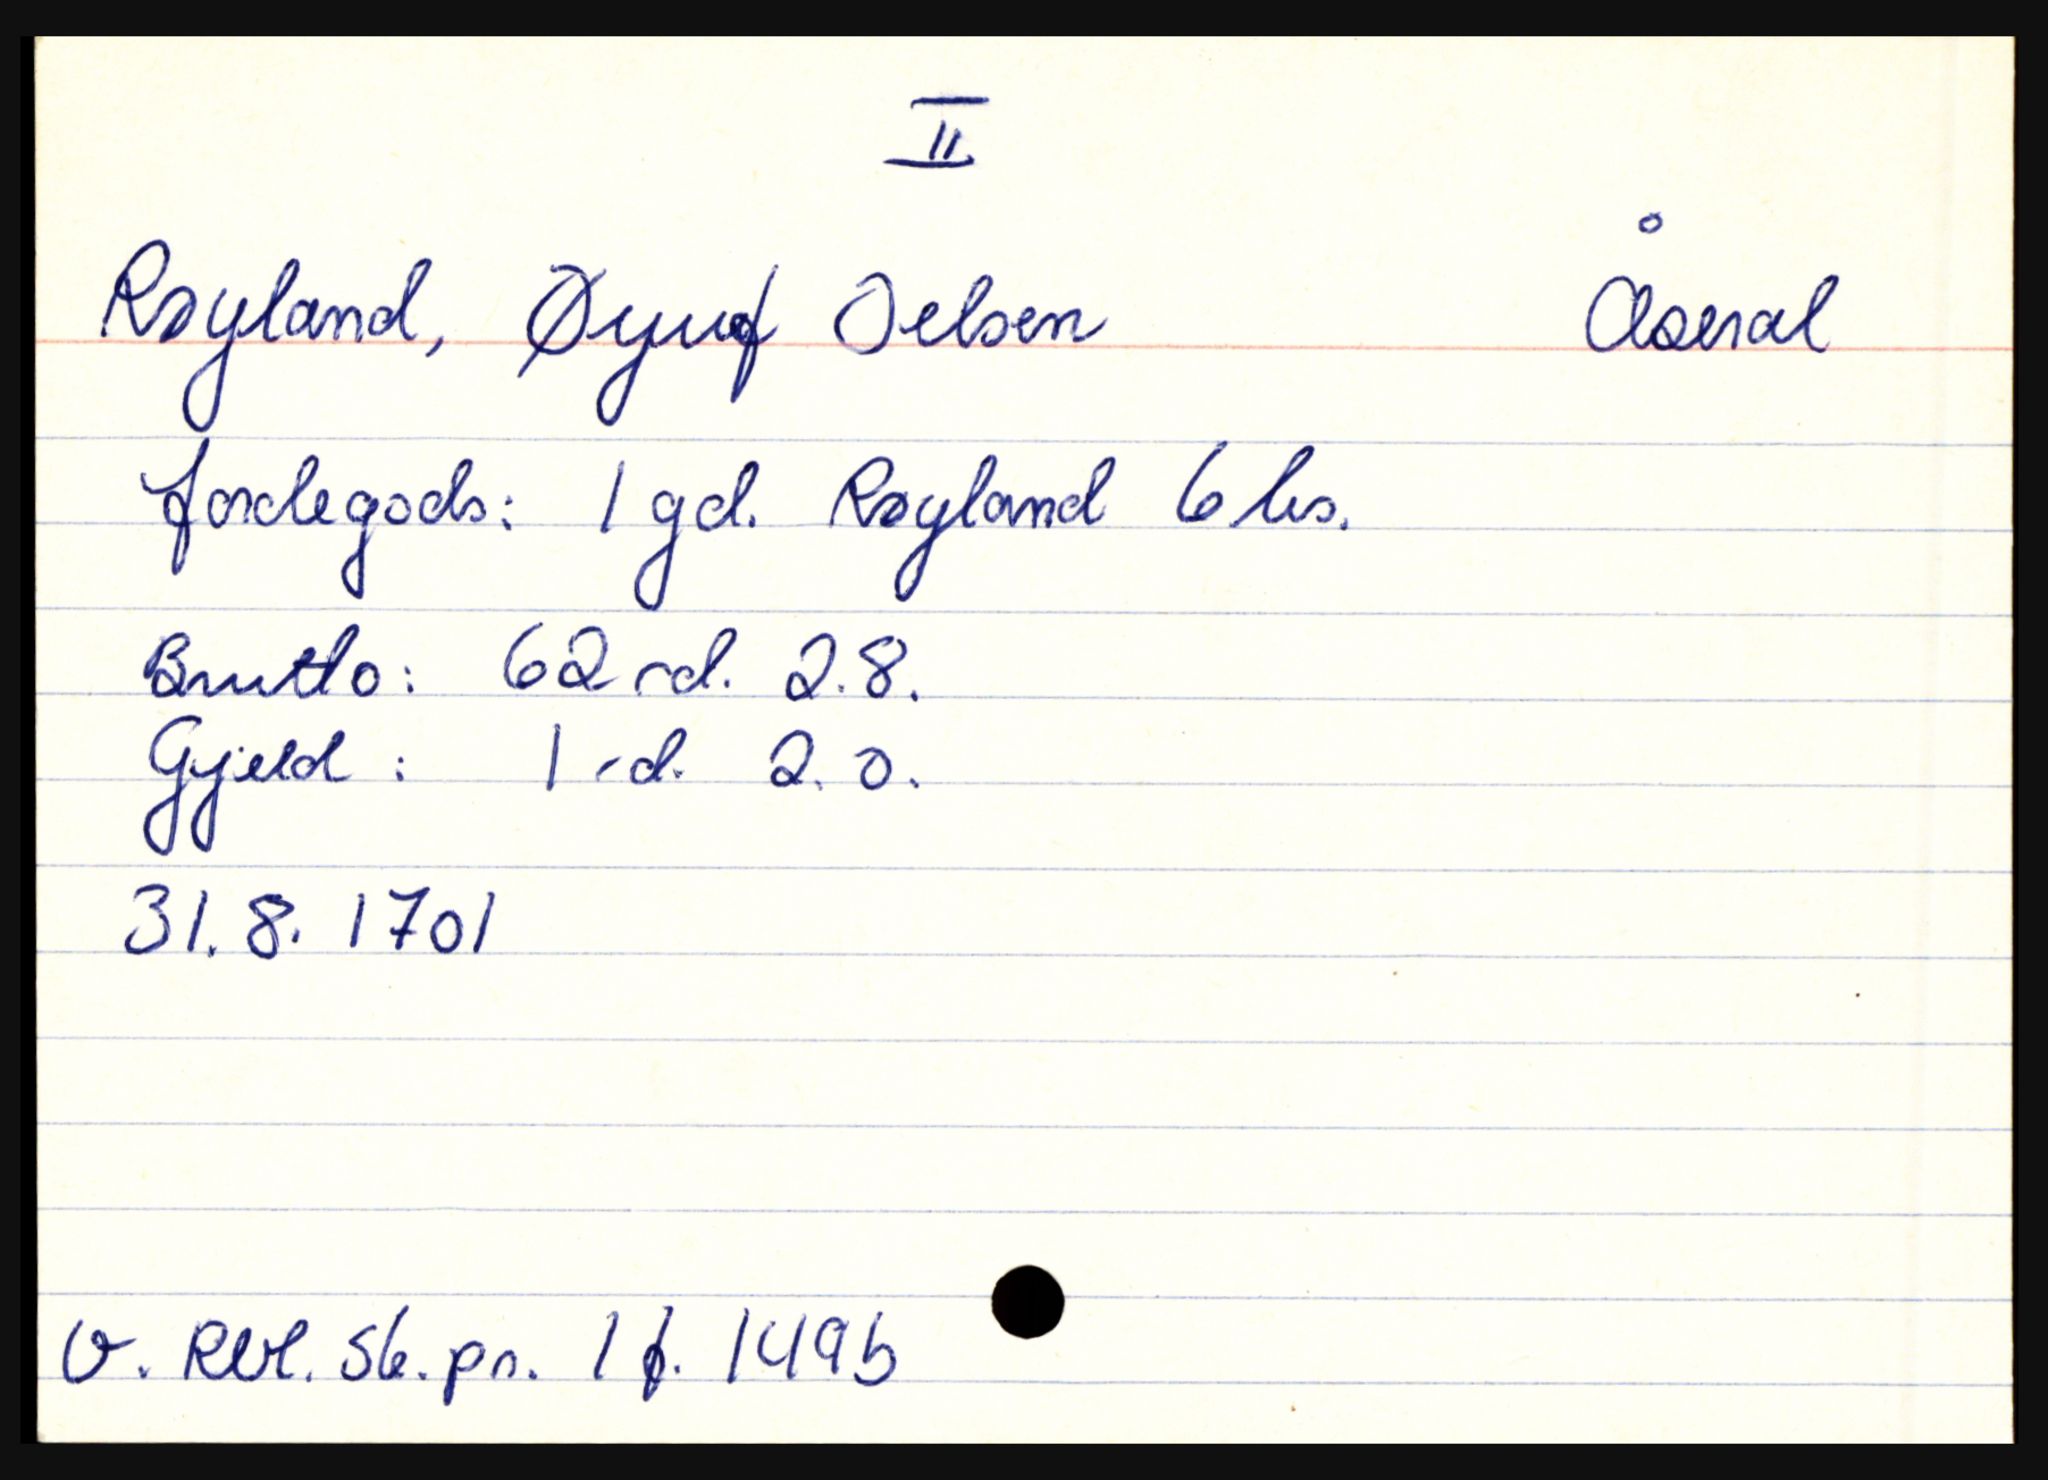 II
Røyland, Øyuf Oelsen Åseral
Jordegods: 1 gd. Røyland 6 hs.
Brutto: 62 rd. 2.8.
Gjeld: 1 rd. 2.0.
31.8.1701
V. Rbl. Sk.pr. 1 f. 149b